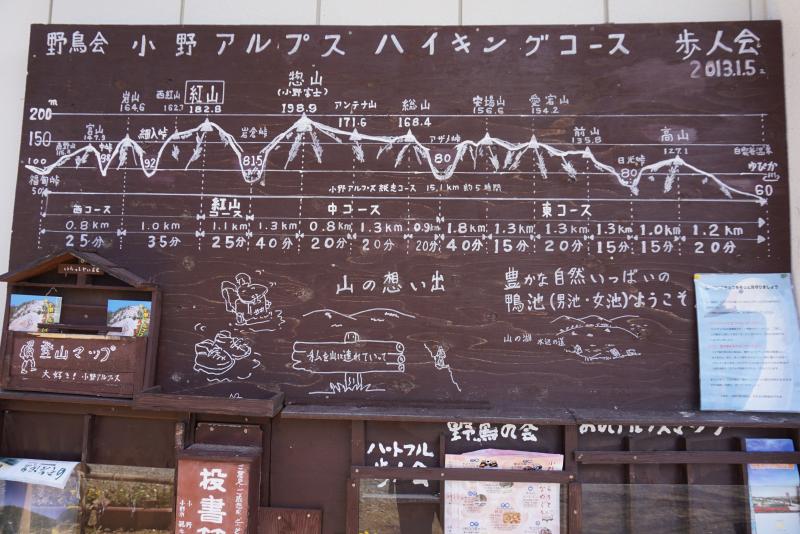 野鳥会 小野アルプス ハイキングコース 歩人会
2013.1.5
惣山
(小野富士)
198.9
紅山
182.8
岩山
164.6
西紅山
162.7
アンテナ山
171.6
総山
168.4
安場山
156.6
愛宕山
154.2
前山
135.8
高山
127.1
白雲谷温泉
ゆぴか
200 m
150
100
50
宮山
岩倉峠
アザメ峠
日光峠
福甸峠
92
815
80
80
60
小野アルプス縦走コース 15.1km 約5時間
西コース 紅山コース 中コース 東コース
0.8km 1.0km 1.1km 1.3km 0.8km 1.3km 0.9km 1.8km 1.3km 1.3km 1.3km 1.0km 1.2km
25分 35分 25分 40分 20分 20分 20分 40分 15分 20分 15分 15分 20分
山の想い出
私を山に連れていって
豊かな自然いっぱいの
鴨池(男池・女池)へようこそ
山の湖 水辺の道
登山マップ
大好き!小野アルプス
ハートフル
歩人会
野鳥の会
投書